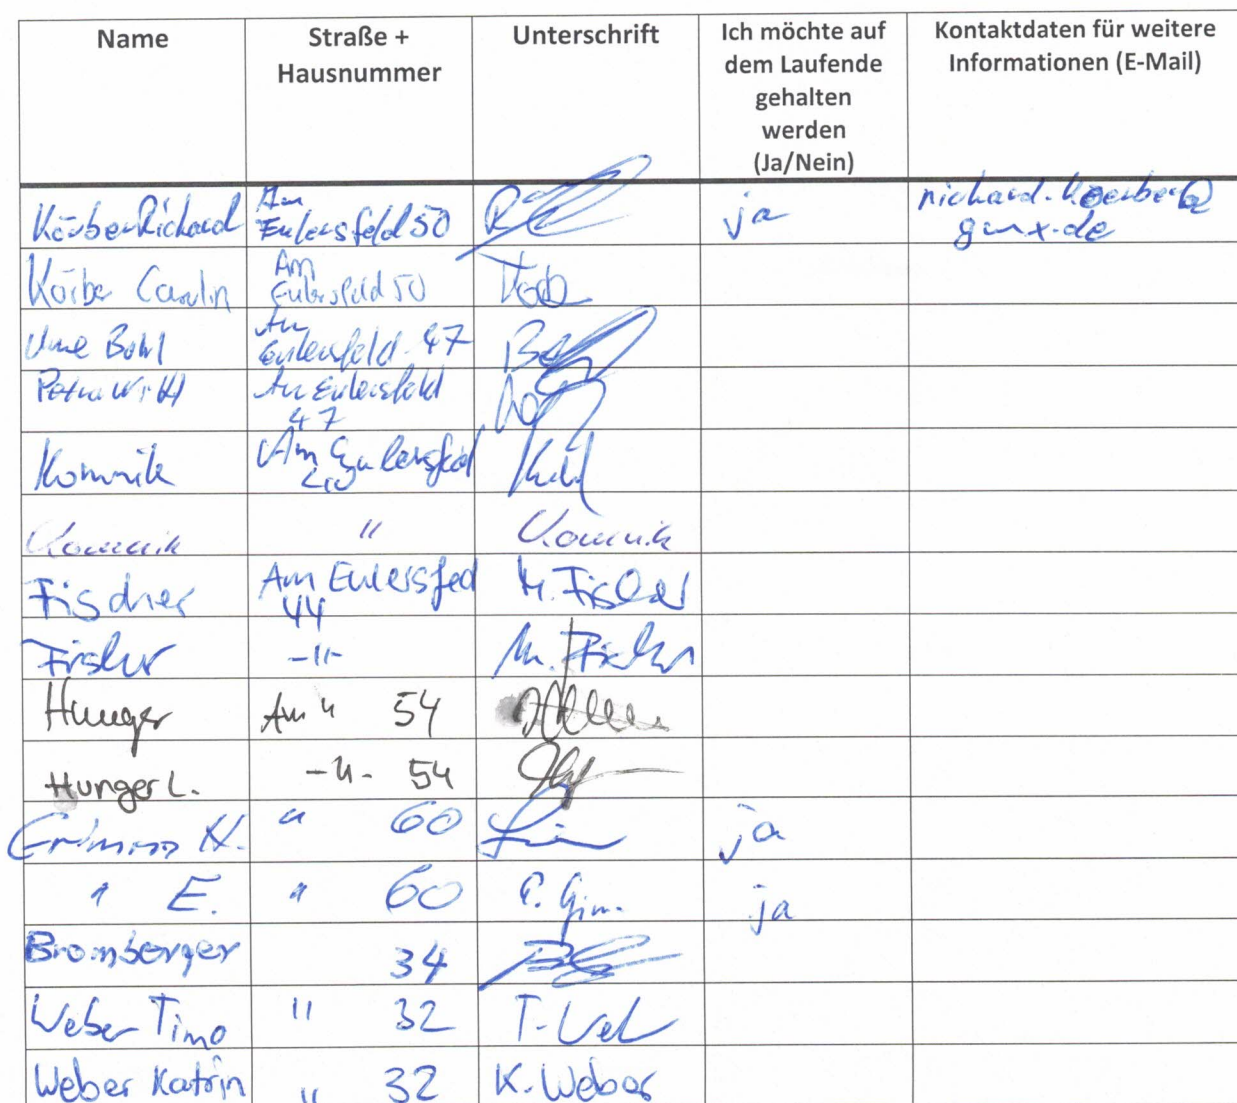 Name Straße + Hausnummer Unterschrift Ich möchte auf dem Laufende gehalten werden (Ja/Nein) Kontaktdaten für weitere Informationen (E-Mail)
Körber Richard Am Eulersfeld 50 ja richard.koerber@gmx.de
Körber Carolin Am Eulersfeld 50
Uwe Bohl Am Eulersfeld 47
Petra Am Eulersfeld 47
Komnik Am Eulersfeld
Komnik " Komnik
Fischer Am Eulersfed 44 M. Fischer
Fischer -"- M. Fischer
Hunger Am " 54
Hunger L. -"- 54
Grimm H. " 60 ja
" E. " 60 E. Grim. ja
Bromberger 34
Weber Timo " 32
Weber Katrin " 32 K. Weber